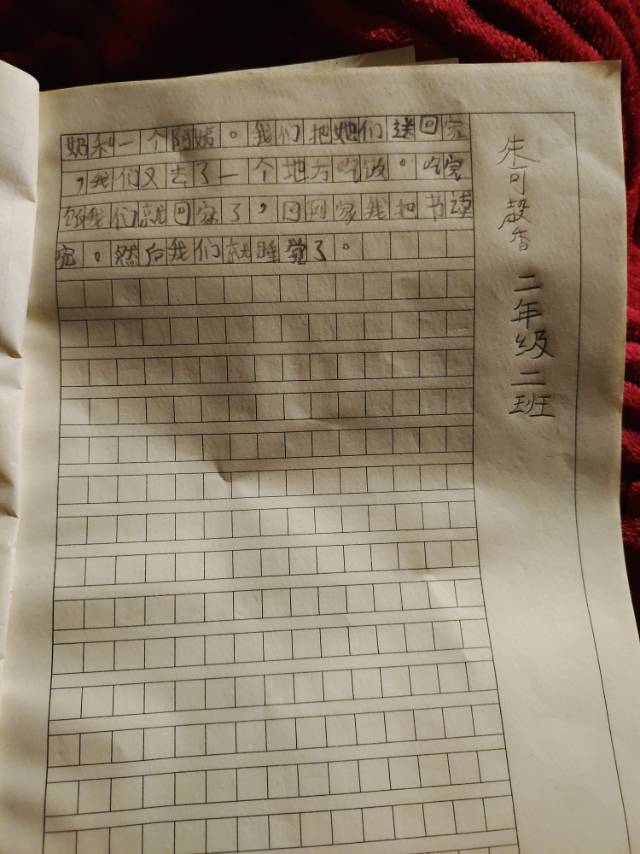 奶和一个阿姨。我们把她们送回家
，我们又去了一个地方吃饭。吃完
饭我们就回家了，回到家我把书读
完。然后我们就睡觉了。
朱可馨香 二年级二班